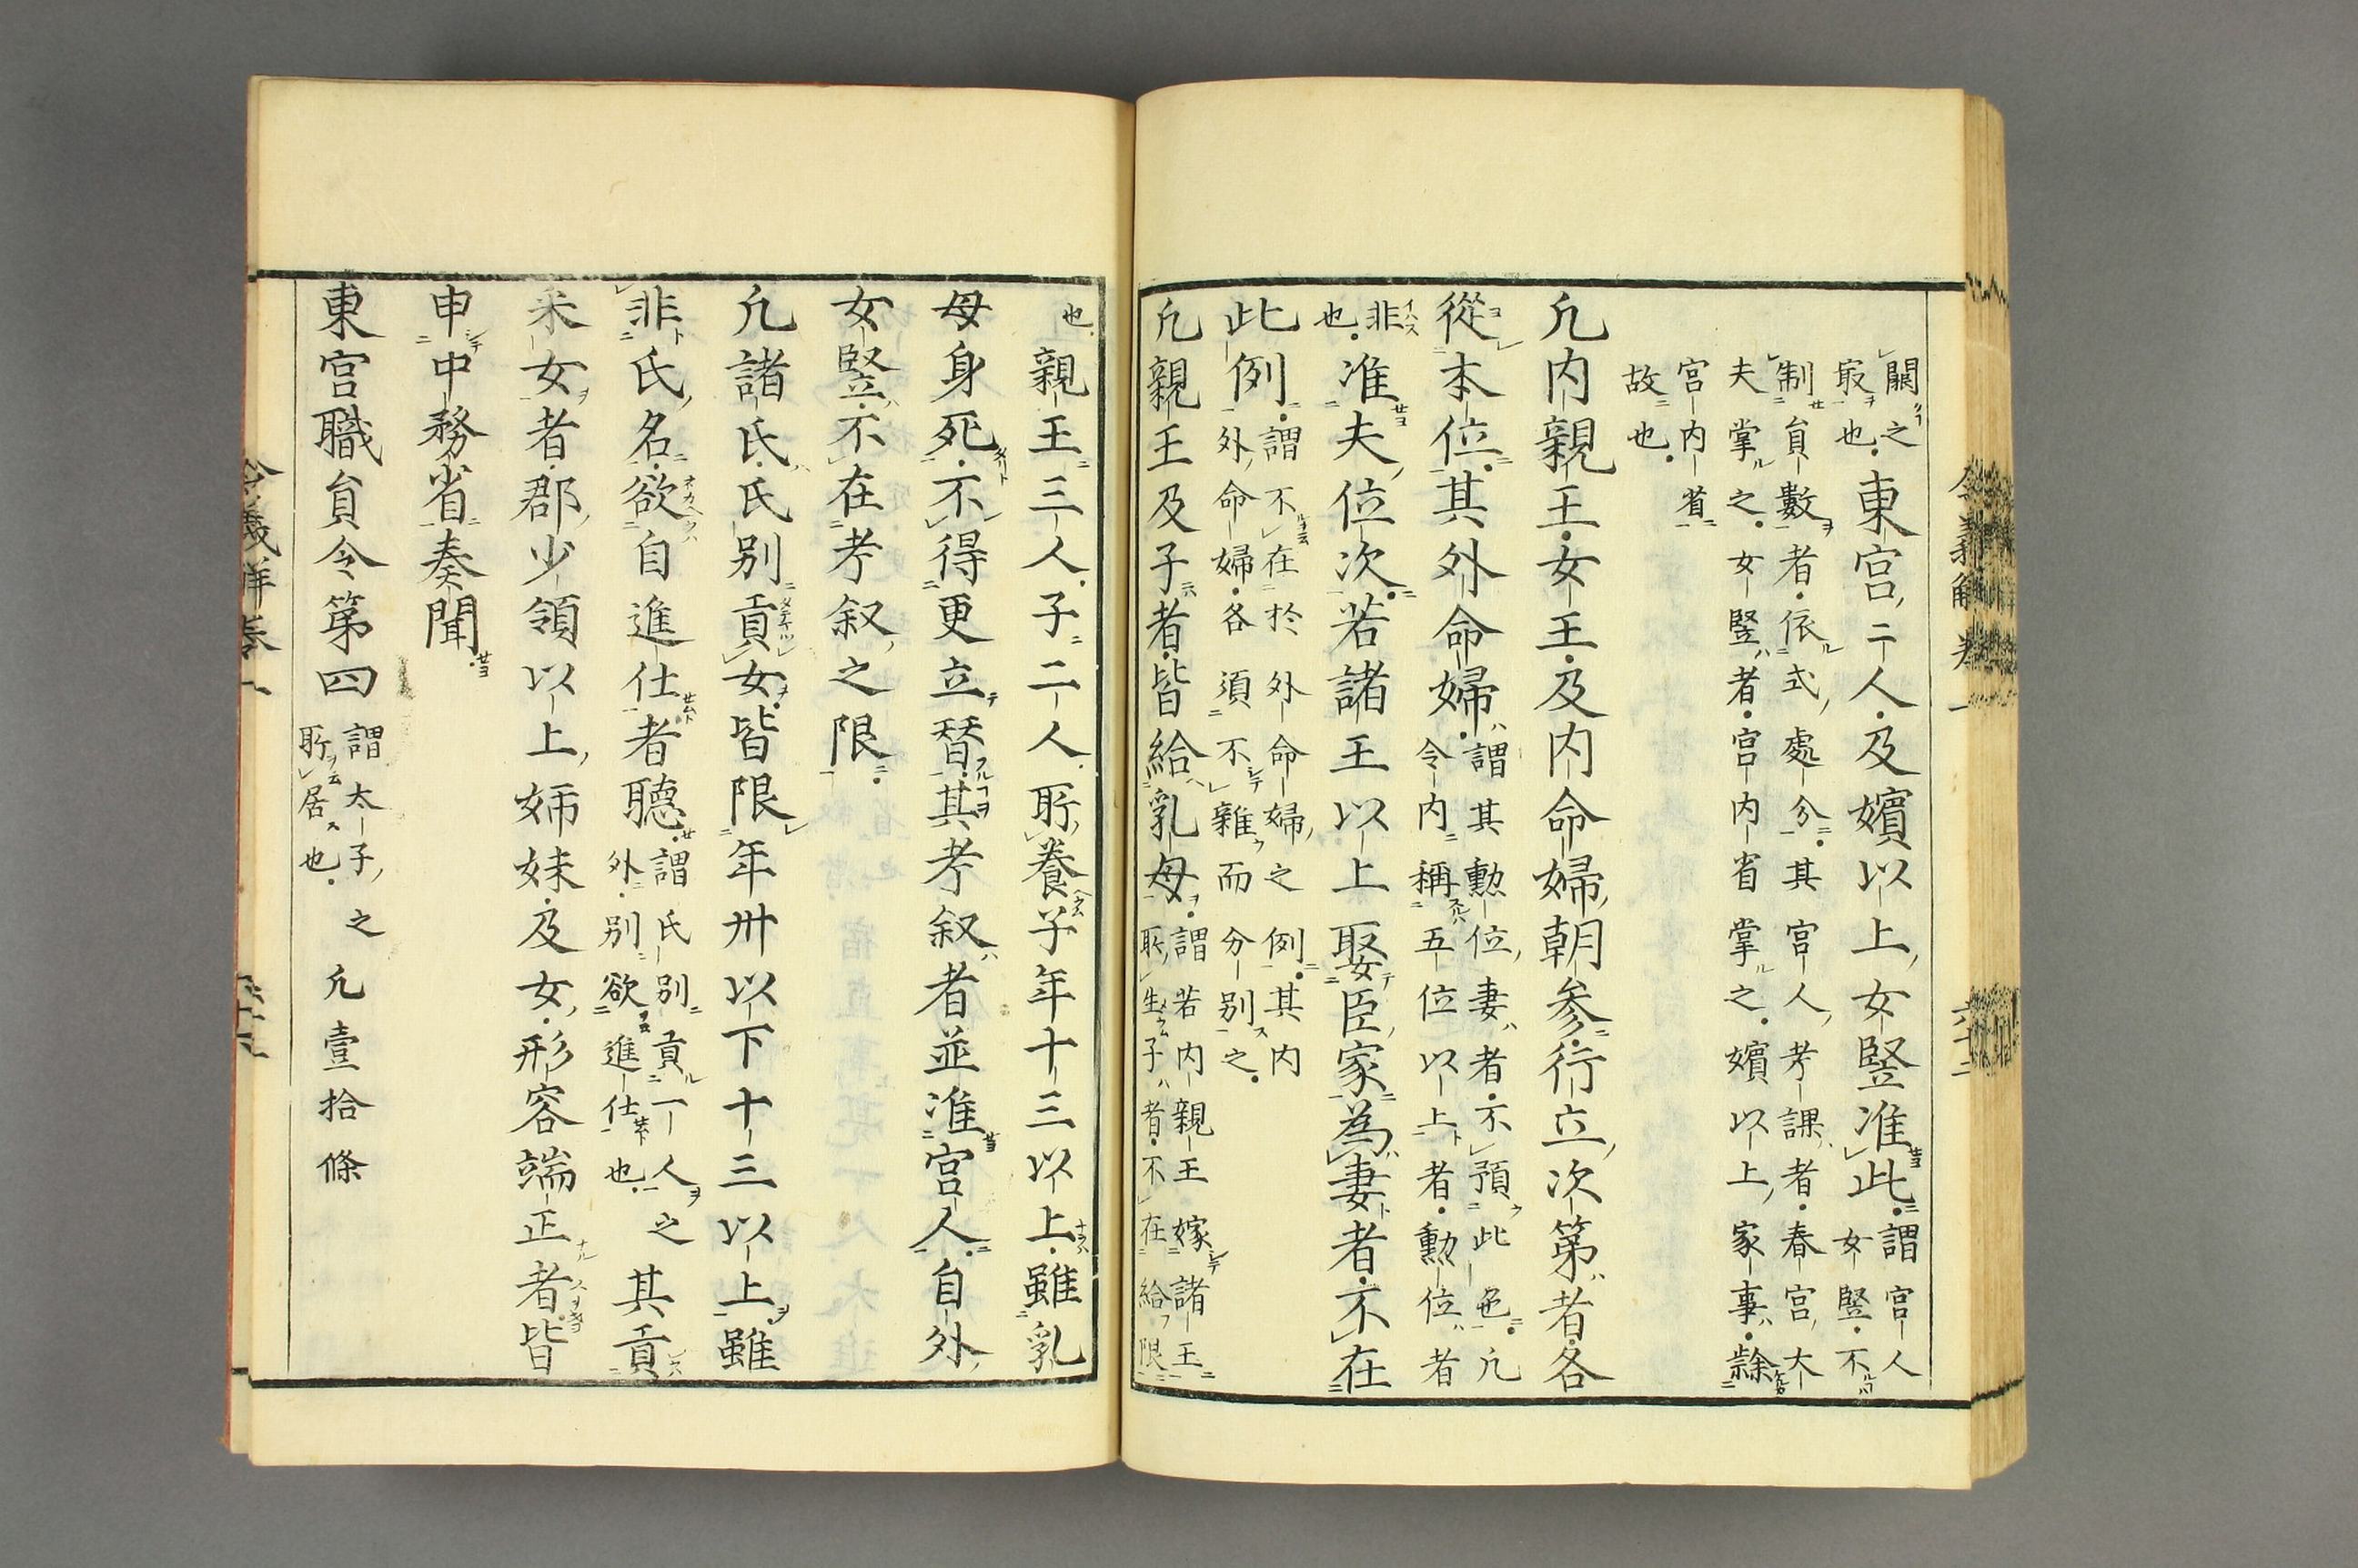 令義解 卷一 六十二
關之
㝡也
東宮二人及嬪以上女竪准此
謂宮人
女竪不
制員數者依式處分其宮人考課者春宮大
夫掌之女竪者宮内省掌之嬪以上家事隸
宮内省
故也
凡内親王女王及内命婦朝參行立次第者各
從本位其外命婦
謂其勲位妻者不預此色凡
令内稱五位以上者勲位者
非
也
准夫位次若諸王以上娶臣家為妻者不在
此例
謂不在於外命婦之例其内
外命婦各須不雜而分別之
凡親王及子者皆給乳母
謂若内親王嫁諸王
所生子者不在給限
也
親王三人子二人所養子年十三以上雖乳
母身死不得更立替其考叙者並准宮人自外
女竪不在考叙之限
凡諸氏氏別貢女皆限年卅以下十三以上雖
非氏名欲自進仕者聽
謂氏別貢一人之
外別欲進仕也
其貢
采女者郡少領以上姉妹及女形容端正者皆
申中務省奏聞
東宮職員令第四
謂太子之
所居也
凡壹拾條